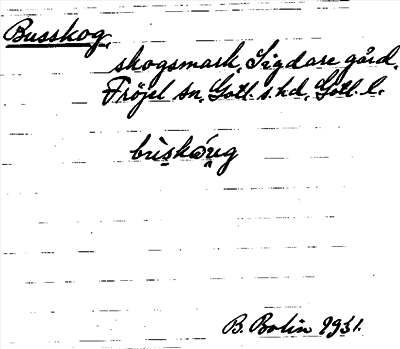 Busskog,
skogsmark, Sigdare gård,
Fröjel sn, Gotl. s. hd, Gotl. l.
B. Bolin 1931.